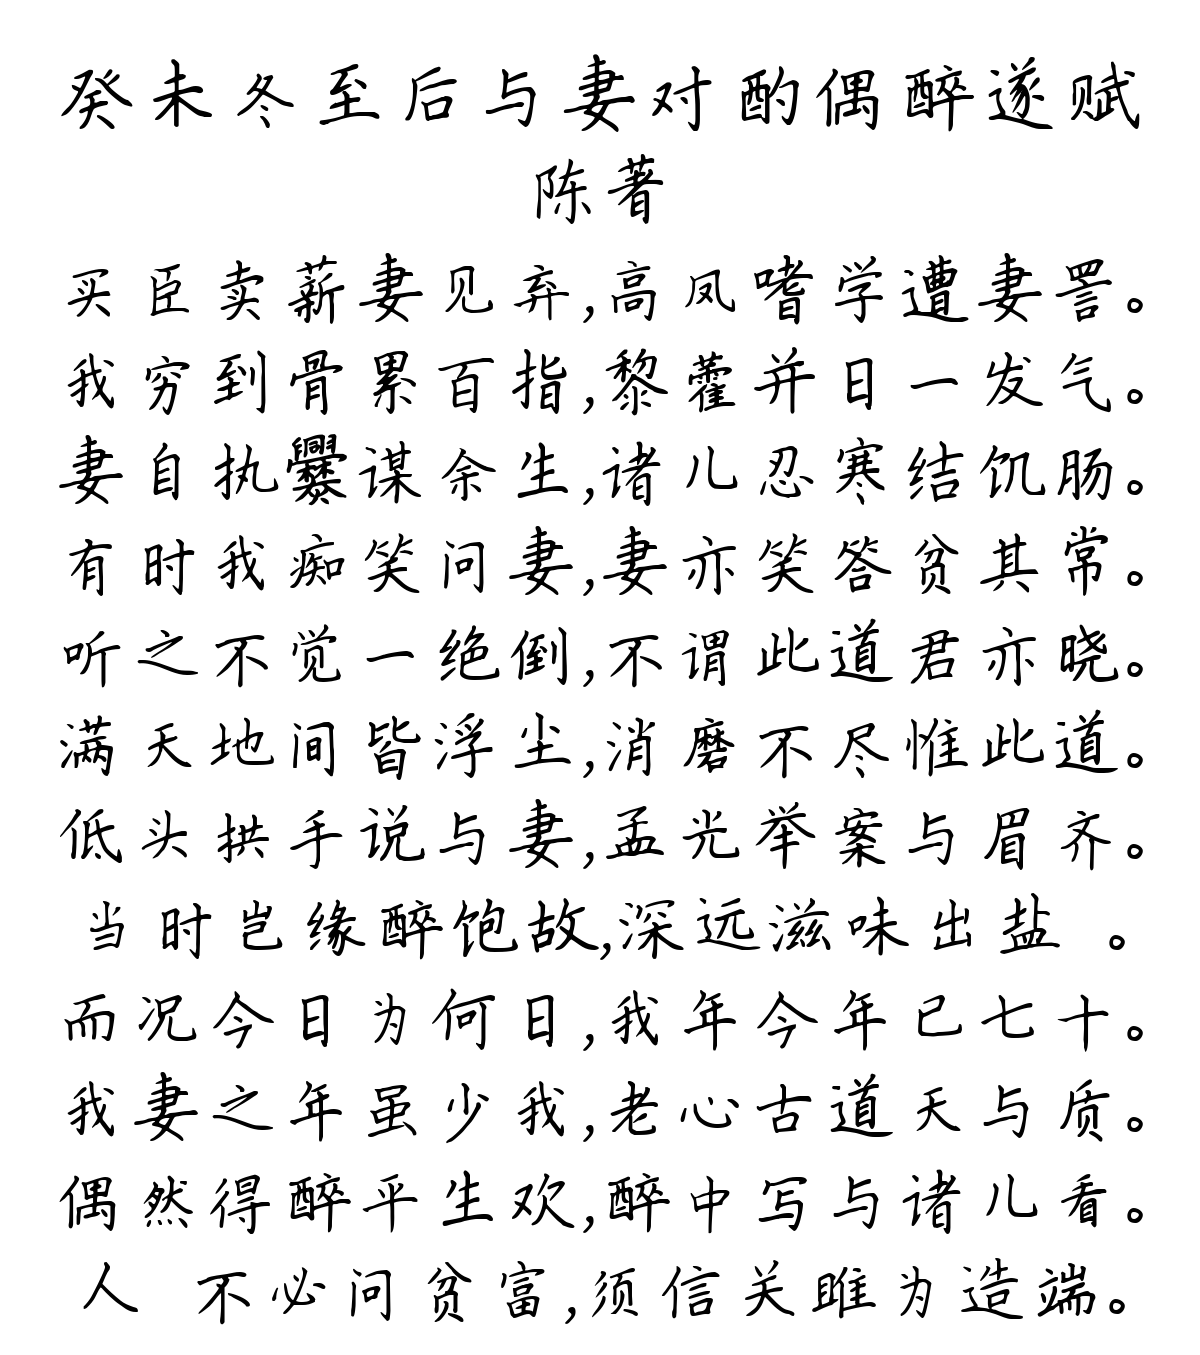 癸未冬至后与妻对酌偶醉遂赋
陈著
买臣卖薪妻见弃,高凤嗜学遭妻詈。
我穷到骨累百指,黎藿并日一发气。
妻自执爨谋余生,诸儿忍寒结饥肠。
有时我痴笑问妻,妻亦笑答贫其常。
听之不觉一绝倒,不谓此道君亦晓。
满天地间皆浮尘,消磨不尽惟此道。
低头拱手说与妻,孟光举案与眉齐。
当时岂缘醉饱故,深远滋味出盐 。
而况今日为何日,我年今年已七十。
我妻之年虽少我,老心古道天与质。
偶然得醉平生欢,醉中写与诸儿看。
人 不必问贫富,须信关雎为造端。